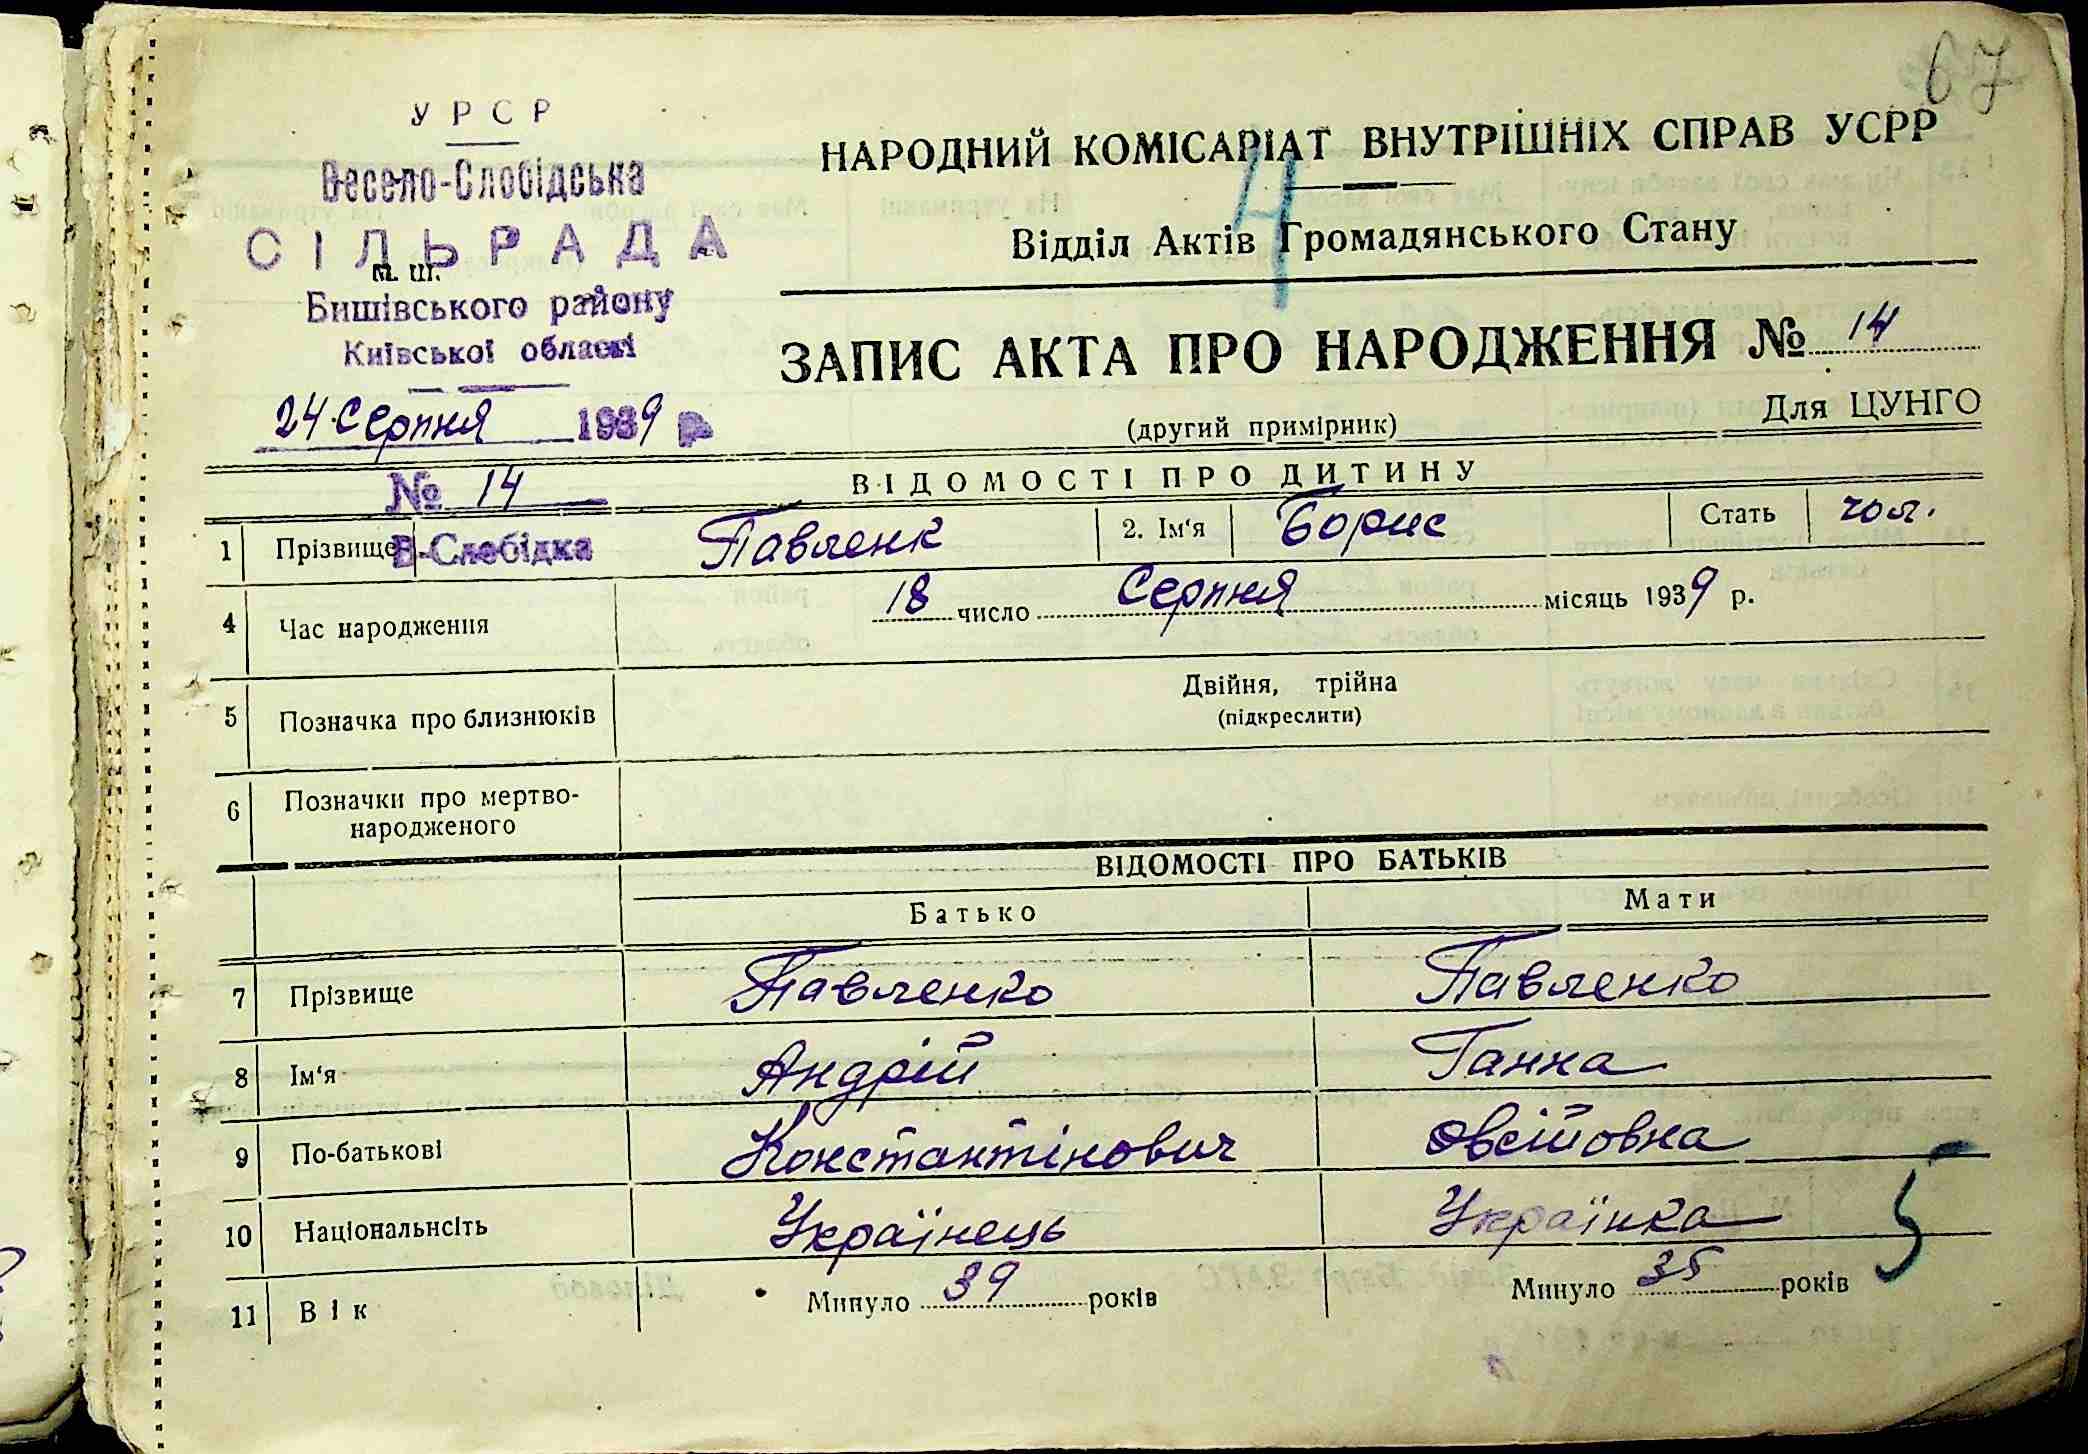 67
УРСР
Весело-Слобідська
СІЛЬРАДА
м. ш.
Бишівського району
Київської області
24 Серпня 1939 р
№ 14
В-Слобідка
НАРОДНИЙ КОМІСАРІАТ ВНУТРІШНІХ СПРАВ УСРР
4
Відділ Актів Громадянського Стану
ЗАПИС АКТА ПРО НАРОДЖЕННЯ № 14
(другий примірник)
Для ЦУНГО
ВІДОМОСТІ ПРО ДИТИНУ
1 Прізвище Павленк 2. Ім‘я Борис Стать чол.
4 Час народження 18 число Серпня місяць 1939 р.
5 Позначка про близнюків Двійня, трійна
(підкреслити)
6 Позначки про мертво-
народженого
ВІДОМОСТІ ПРО БАТЬКІВ
Батько Мати
7 Прізвище Павленко Павленко
8 Ім‘я Андрій Ганна
9 По-батькові Константінович Овсійовна
10 Національнсіть Українець Українка
5
11 Вік Минуло 39 років Минуло 35 років